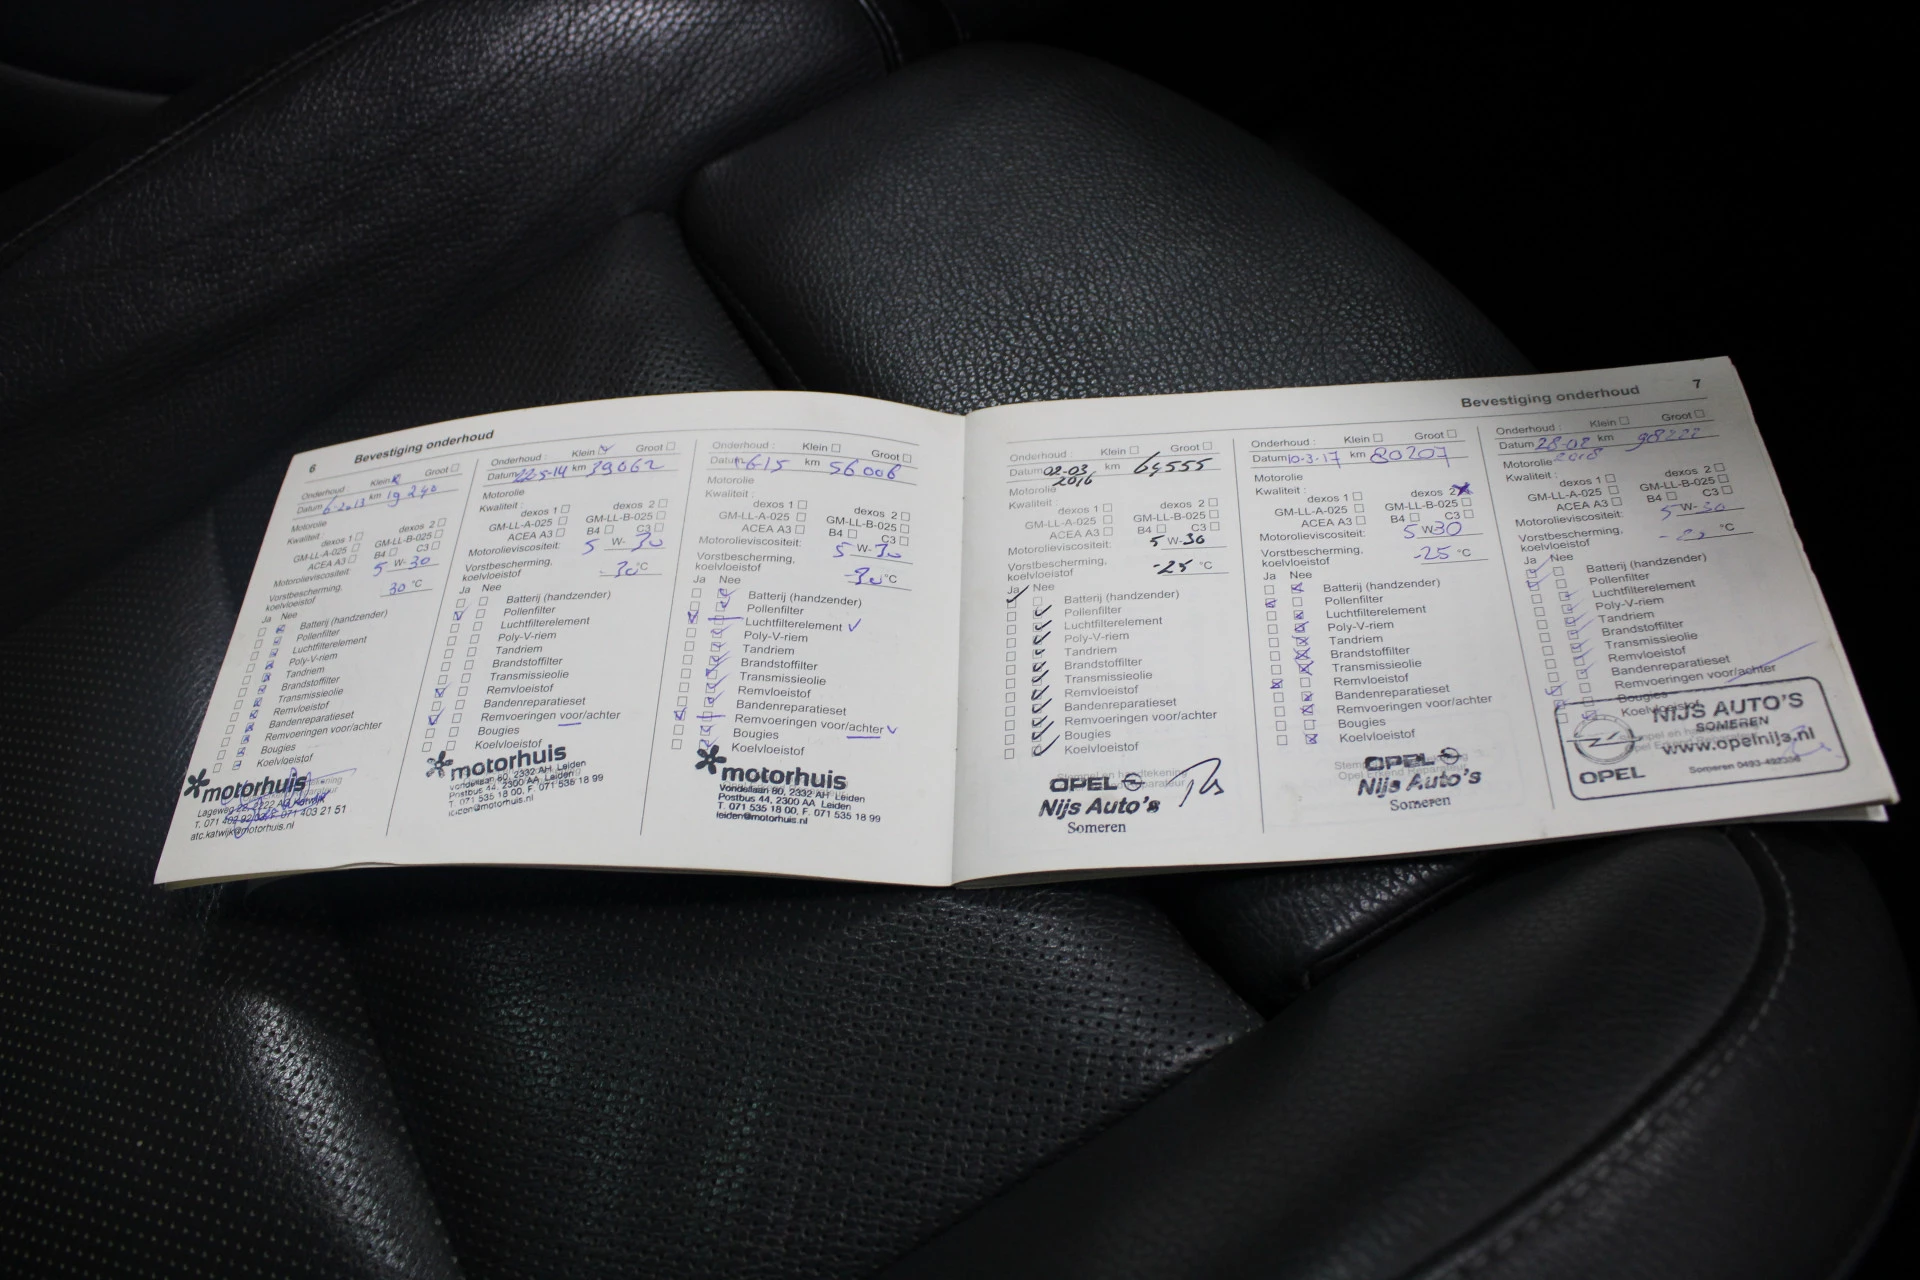 6 Bevestiging onderhoud
Onderhoud : Klein Groot
Datum 6-2-2013 km 19 240
Motorolie
Kwaliteit : dexos 1 dexos 2
GM-LL-A-025 GM-LL-B-025
ACEA A3 B4 C3
Motorolieviscositeit: 5 W- 30
Vorstbescherming,
koelvloeistof 30 °C
Ja Nee
Batterij (handzender)
Pollenfilter
Luchtfilterelement
Poly-V-riem
Tandriem
Brandstoffilter
Transmissieolie
Remvloeistof
Bandenreparatieset
Remvoeringen voor/achter
Bougies
Koelvloeistof
motorhuis
Lageweg 22, 2222 AG Katwijk
atc.katwijk@motorhuis.nl
Onderhoud : Klein Groot
Datum 22-5-14 km 39062
Motorolie
Kwaliteit : dexos 1 dexos 2
GM-LL-A-025 GM-LL-B-025
ACEA A3 B4 C3
Motorolieviscositeit: 5 W- 30
Vorstbescherming,
koelvloeistof -30 °C
Ja Nee
Batterij (handzender)
Pollenfilter
Luchtfilterelement
Poly-V-riem
Tandriem
Brandstoffilter
Transmissieolie
Remvloeistof
Bandenreparatieset
Remvoeringen voor/achter
Bougies
Koelvloeistof
motorhuis
Vondellaan 80, 2332 AH Leiden
Postbus 44, 2300 AA Leiden
T. 071 535 18 00, F. 071 535 18 99
leiden@motorhuis.nl
Onderhoud : Klein Groot
Datum km 56006
Motorolie
Kwaliteit : dexos 1 dexos 2
GM-LL-A-025 GM-LL-B-025
ACEA A3 B4 C3
Motorolieviscositeit: 5 W- 30
Vorstbescherming,
koelvloeistof -30 °C
Ja Nee
Batterij (handzender)
Pollenfilter
Luchtfilterelement
Poly-V-riem
Tandriem
Brandstoffilter
Transmissieolie
Remvloeistof
Bandenreparatieset
Remvoeringen voor/achter
Bougies
Koelvloeistof
motorhuis
Vondellaan 80, 2332 AH Leiden
Postbus 44, 2300 AA Leiden
T. 071 535 18 00, F. 071 535 18 99
leiden@motorhuis.nl
Bevestiging onderhoud 7
Onderhoud : Klein Groot
Datum 02-03 2016 km 64555
Motorolie
Kwaliteit : dexos 1 dexos 2
GM-LL-A-025 GM-LL-B-025
ACEA A3 B4 C3
Motorolieviscositeit: 5 W-30
Vorstbescherming,
koelvloeistof -25 °C
Ja Nee
Batterij (handzender)
Pollenfilter
Luchtfilterelement
Poly-V-riem
Tandriem
Brandstoffilter
Transmissieolie
Remvloeistof
Bandenreparatieset
Remvoeringen voor/achter
Bougies
Koelvloeistof
Stempel en handtekening
OPEL
Nijs Auto's
Someren
Onderhoud : Klein Groot
Datum 10-3-17 km 80207
Motorolie
Kwaliteit : dexos 1 dexos 2
GM-LL-A-025 GM-LL-B-025
ACEA A3 B4 C3
Motorolieviscositeit: 5 W 30
Vorstbescherming,
koelvloeistof -25 °C
Ja Nee
Batterij (handzender)
Pollenfilter
Luchtfilterelement
Poly-V-riem
Tandriem
Brandstoffilter
Transmissieolie
Remvloeistof
Bandenreparatieset
Remvoeringen voor/achter
Bougies
Koelvloeistof
Stempel en handtekening
Opel Erkend Reparateur
OPEL
Nijs Auto's
Someren
Onderhoud : Klein Groot
Datum 28-02 2018 km 98222
Motorolie
Kwaliteit : dexos 1 dexos 2
GM-LL-A-025 GM-LL-B-025
ACEA A3 B4 C3
Motorolieviscositeit: 5 W- 30
Vorstbescherming,
koelvloeistof °C
Ja Nee
Batterij (handzender)
Pollenfilter
Luchtfilterelement
Poly-V-riem
Tandriem
Brandstoffilter
Transmissieolie
Remvloeistof
Bandenreparatieset
Remvoeringen voor/achter
Bougies
Koelvloeistof
NIJS AUTO'S
SOMEREN
www.opelnijs.nl
OPEL
Someren